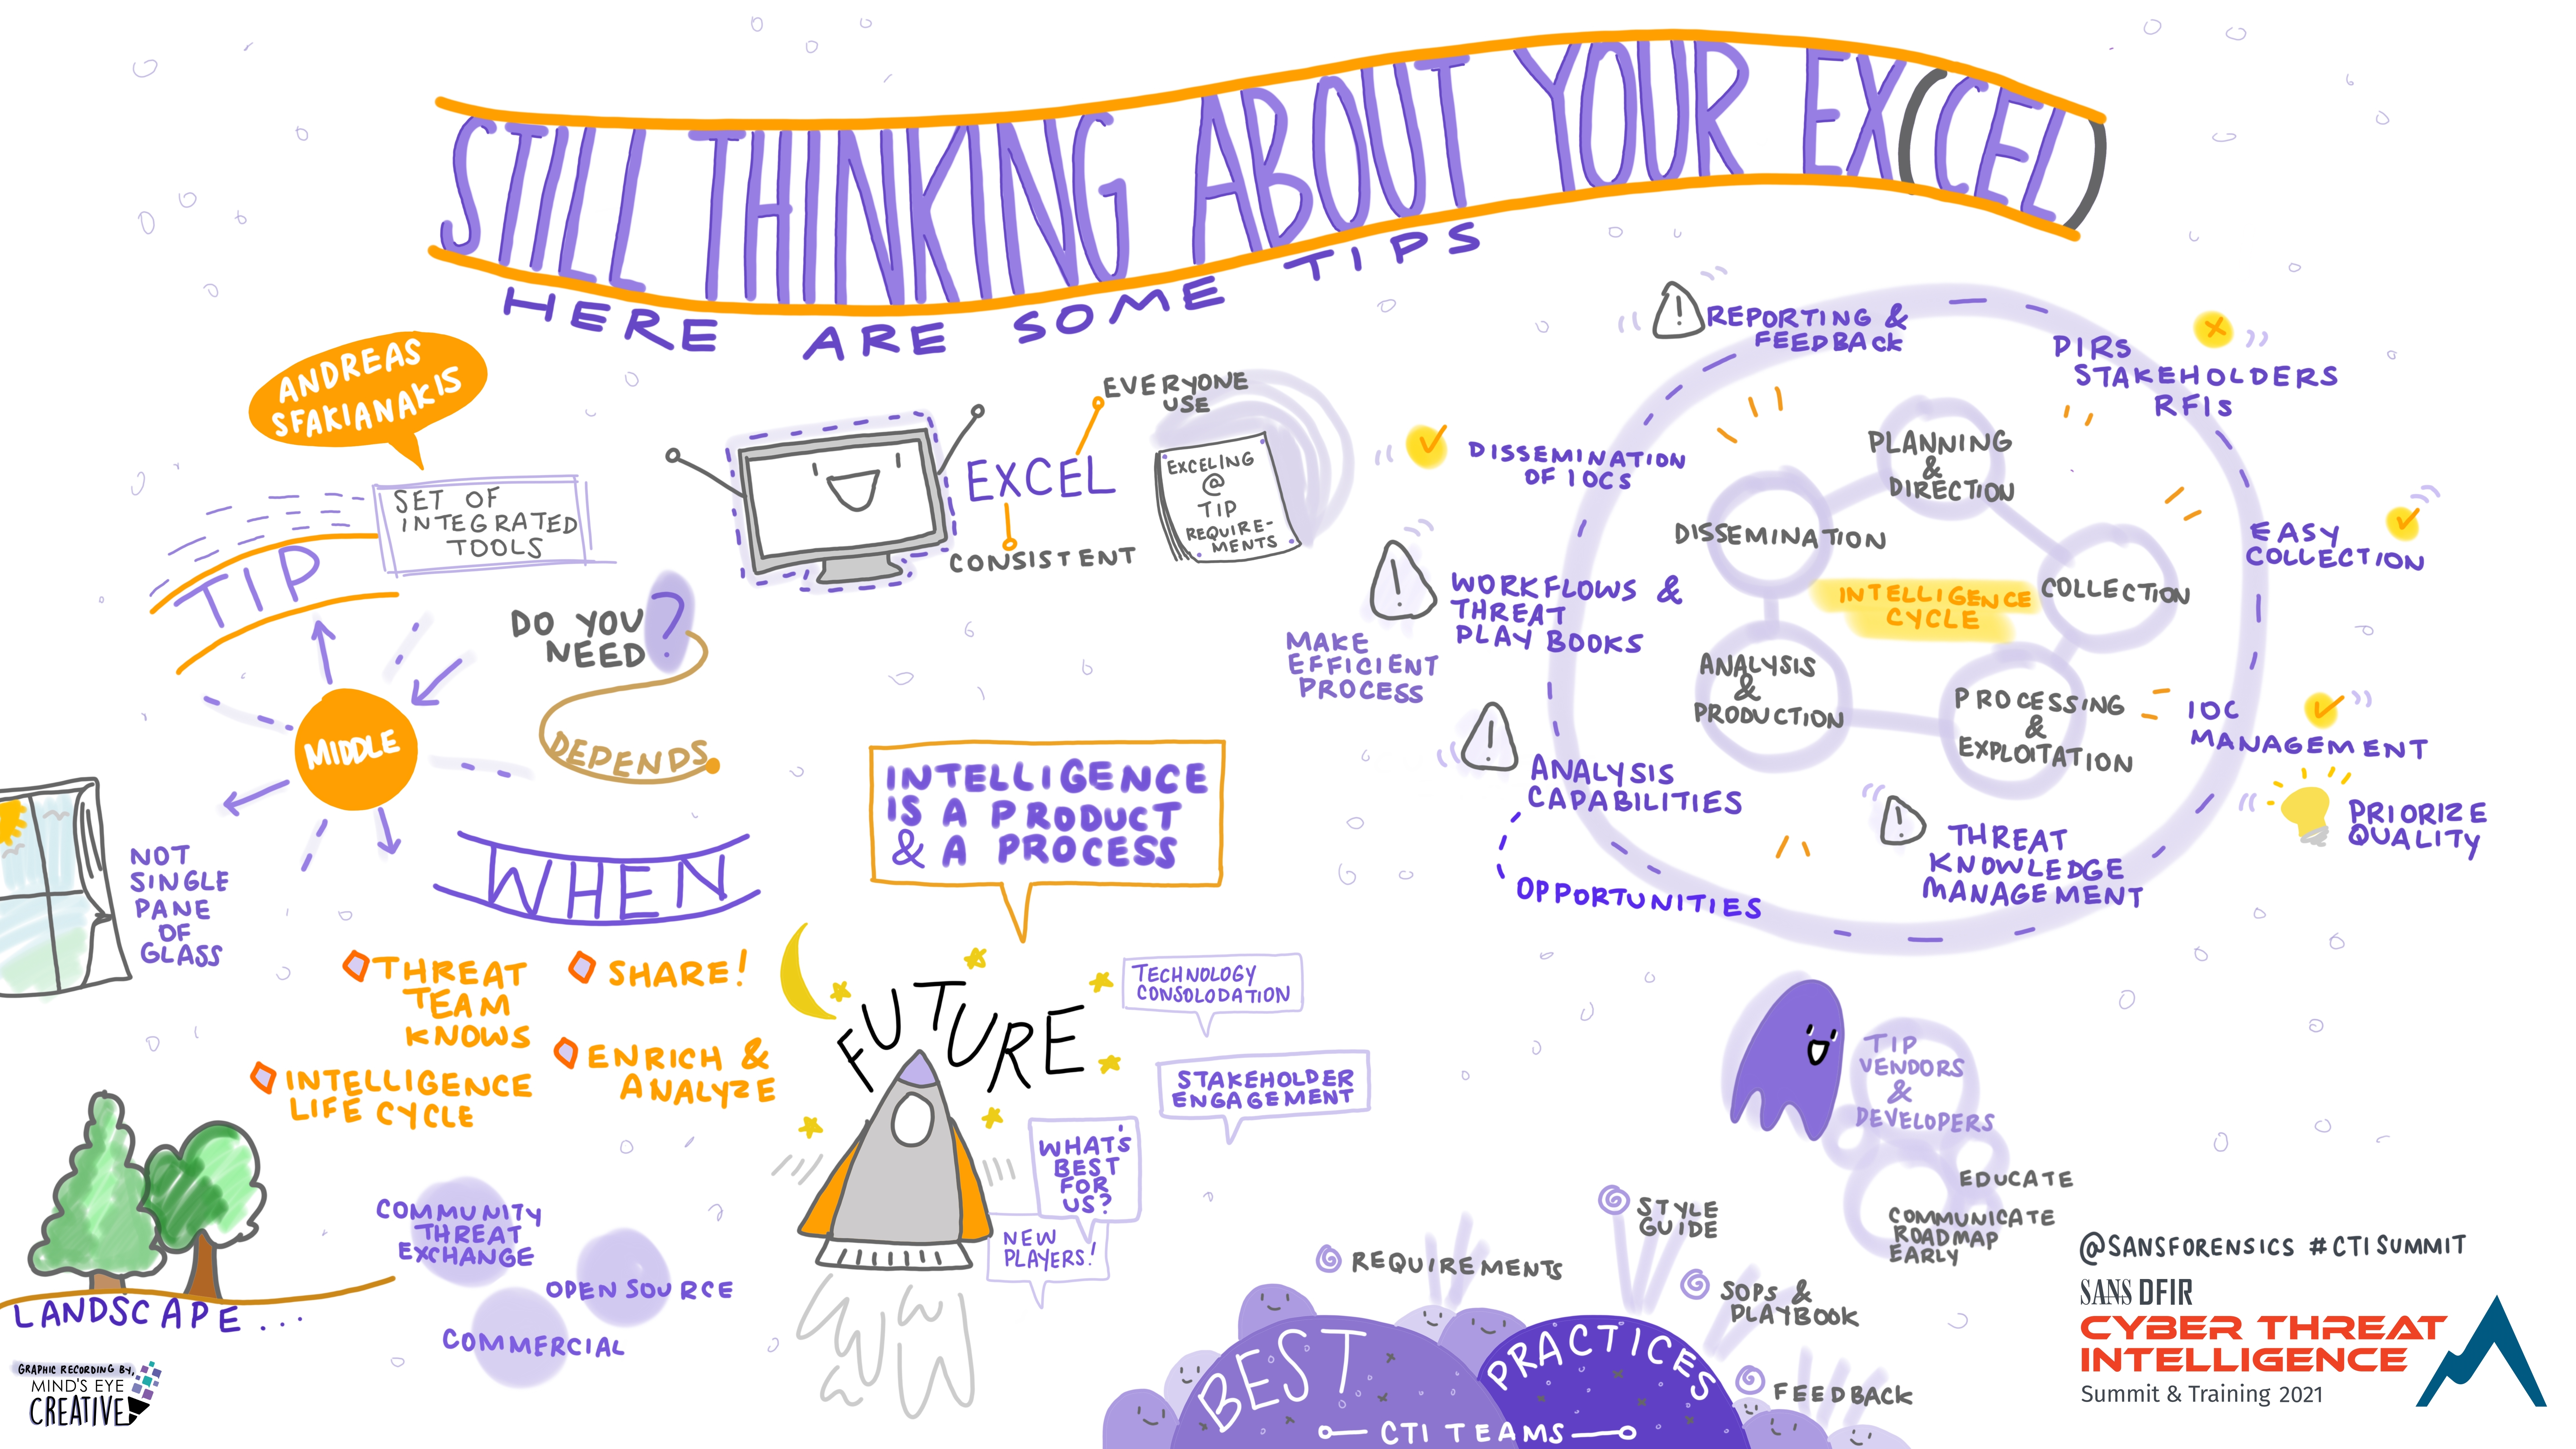 STILL THINKING ABOUT YOUR EX(CEL)
HERE ARE SOME TIPS
ANDREAS
SFAKIANAKIS
SET OF
INTEGRATED
TOOLS
TIP
MIDDLE
NOT
SINGLE
PANE
OF
GLASS
DO YOU
NEED ?
DEPENDS
WHEN
THREAT
TEAM
KNOWS
SHARE!
INTELLIGENCE
LIFE CYCLE
ENRICH &
ANALYZE
LANDSCAPE...
COMMUNITY
THREAT
EXCHANGE
OPEN SOURCE
COMMERCIAL
GRAPHIC RECORDING BY,
MIND'S EYE
CREATIVE
EXCEL
EVERYONE
USE
CONSISTENT
EXCELING
@
TIP
REQUIRE-
MENTS
INTELLIGENCE
IS A PRODUCT
& A PROCESS
FUTURE
TECHNOLOGY
CONSOLODATION
STAKEHOLDER
ENGAGEMENT
WHAT'S
BEST
FOR
US?
NEW
PLAYERS!
REPORTING &
FEEDBACK
DISSEMINATION
OF IOCS
WORKFLOWS &
THREAT
PLAY BOOKS
MAKE
EFFICIENT
PROCESS
ANALYSIS
CAPABILITIES
OPPORTUNITIES
INTELLIGENCE
CYCLE
PLANNING
&
DIRECTION
COLLECTION
PROCESSING
&
EXPLOITATION
ANALYSIS
&
PRODUCTION
DISSEMINATION
PIRS
STAKEHOLDERS
RFIS
EASY
COLLECTION
IOC
MANAGEMENT
PRIORIZE
QUALITY
THREAT
KNOWLEDGE
MANAGEMENT
TIP
VENDORS
&
DEVELOPERS
EDUCATE
COMMUNICATE
ROADMAP
EARLY
REQUIREMENTS
STYLE
GUIDE
SOPS &
PLAYBOOK
FEEDBACK
BEST PRACTICES
CTI TEAMS
@SANSFORENSICS #CTISUMMIT
SANS DFIR
CYBER THREAT
INTELLIGENCE
Summit & Training 2021